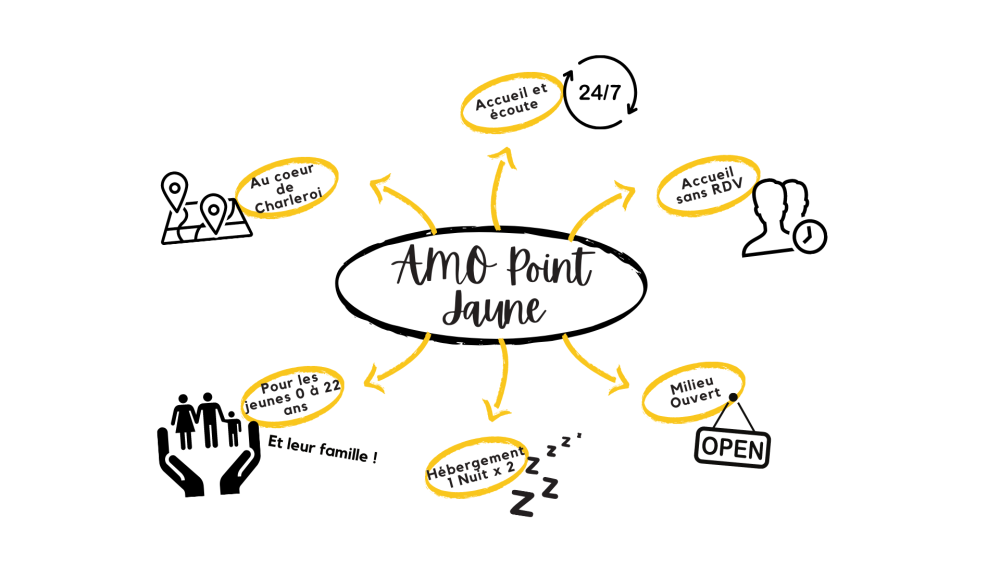 Accueil et
écoute
24/7
Au coeur
de
Charleroi
Accueil
sans RDV
AMO Point
Jaune
Pour les
jeunes 0 à 22
ans
Et leur famille !
Hébergement
1 Nuit x 2
z z z z z
Milieu
Ouvert
OPEN